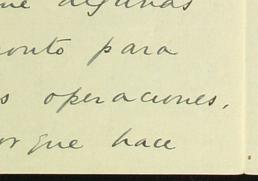 ue algunas
onto para
s operaciones.
orque hace